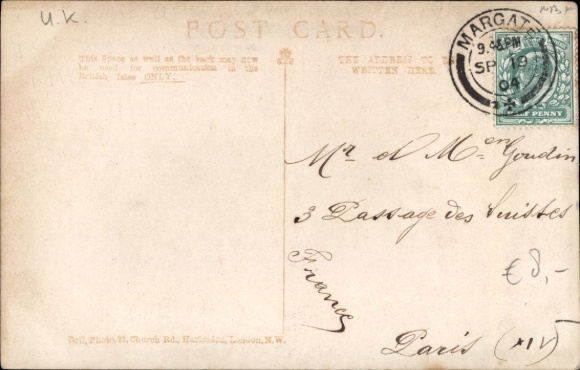 U.K.
POST CARD.
This Space as well as the back may now
be used for communication in the
British Isles ONLY.
THE ADDRESS TO BE
WRITTEN HERE
MARGATE
9.45PM
SP 19
04
HALF PENNY
Mr et Men Goudin
3 Passage des Suisses
France
€8,-
Paris (XIV)
Bell, Photo, 22, Church Rd., Harlesden, London, N.W.